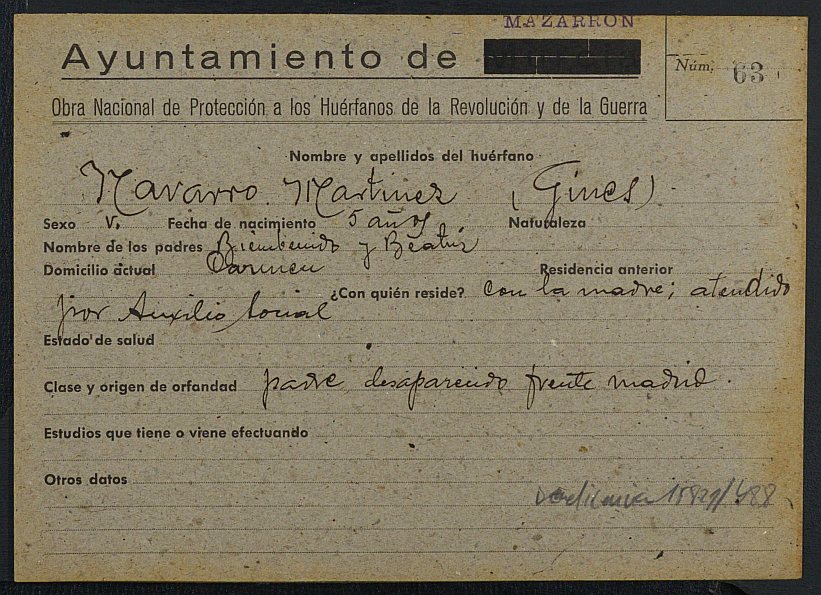 MAZARRON
Ayuntamiento de
Núm. 63
Obra Nacional de Protección a los Huérfanos de la Revolución y de la Guerra
Nombre y apellidos del huérfano
Navarro Martinez (Gines)
Sexo V. Fecha de nacimiento 5 años Naturaleza
Nombre de los padres Bienbenido y Beatriz
Domicilio actual Carmen Residencia anterior
¿Con quién reside? con la madre; atendido
por Auxilio Social
Estado de salud
Clase y origen de orfandad padre desaparecido frente madrid.
Estudios que tiene o viene efectuando
Otros datos